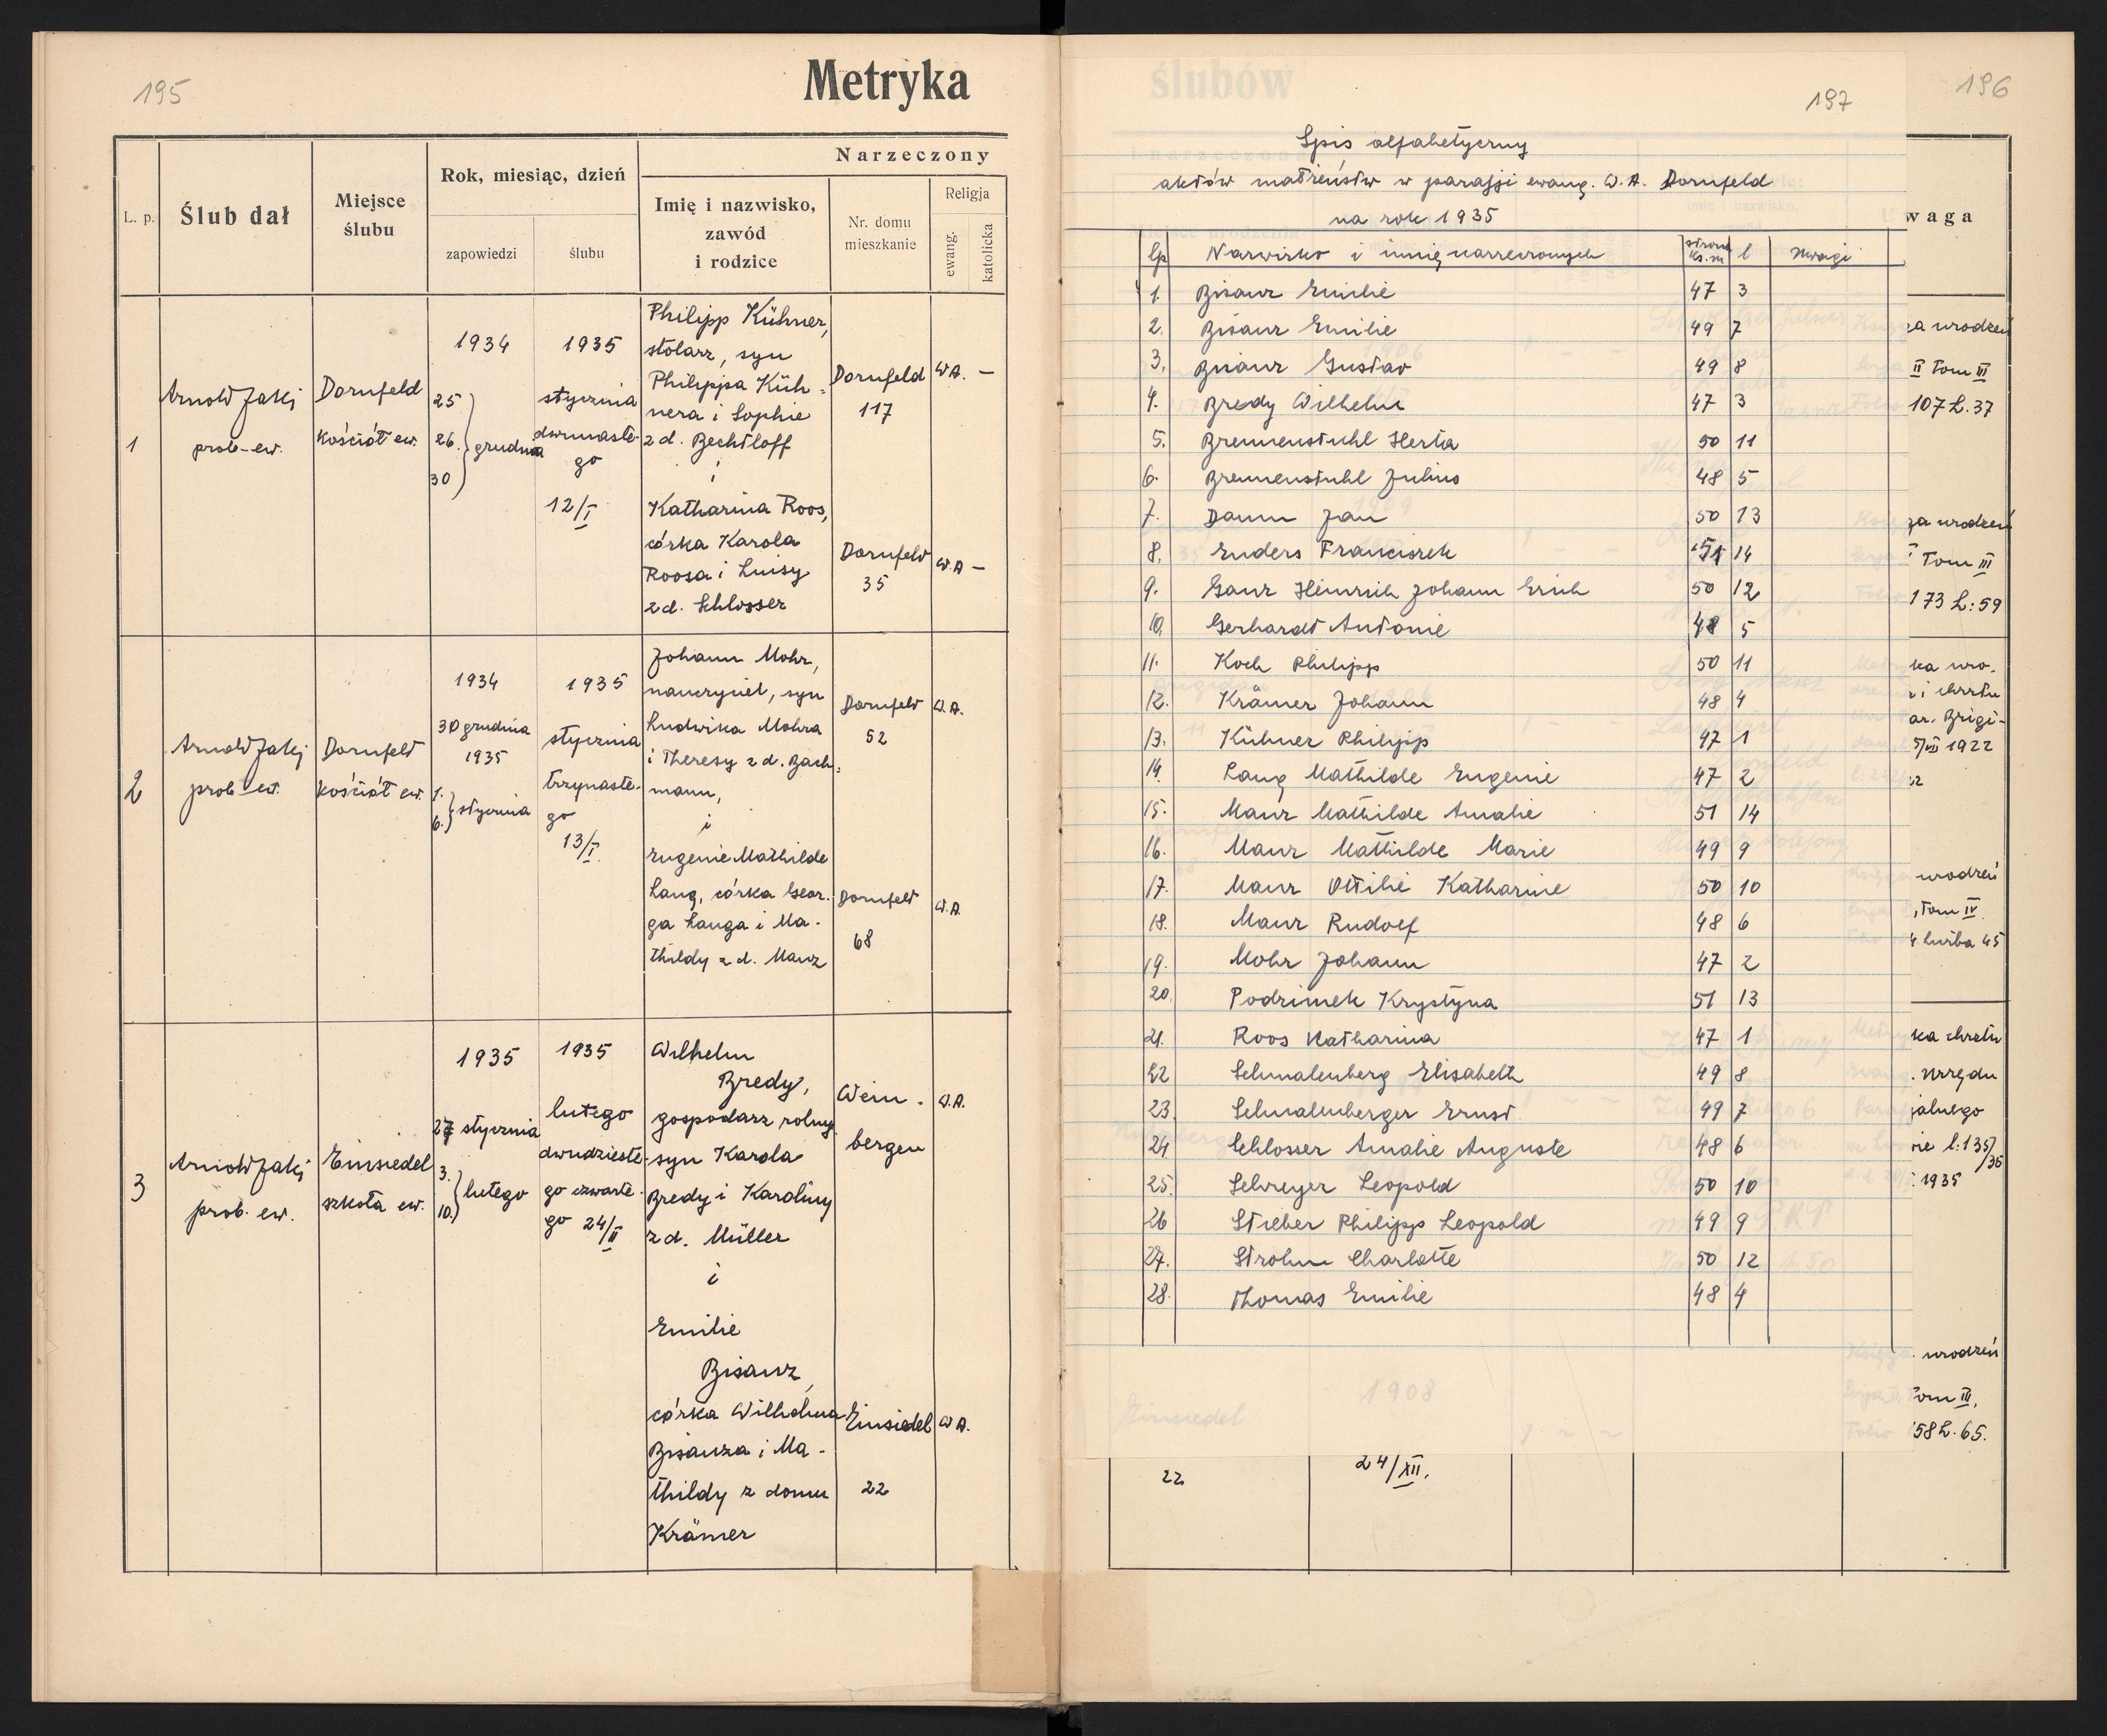 195
Metryka
L. p.
Ślub dał
Miejsce
ślubu
Rok, miesiąc, dzień
zapowiedzi
ślubu
Narzeczony
Imię i nazwisko,
zawód
i rodzice
Nr. domu
mieszkanie
Religja
ewang.
katolicka
1
Arnold Jaki
prob-ew.
Dornfeld
kościół ew.
1934
25
26
30
grudnia
1935
stycznia
dwunaste-
go
12/I
Philipp Kühner,
stolarz, syn
Philippa Küh-
nera i Sophie
z d. Bechtloff
i
Katharina Roos,
córka Karola
Roosa i Luisy
z d. Schlosser
Dornfeld
117
W.A. —
Dornfeld
35
W.A —
2
Arnold Jaki
prob-ew.
Dornfeld
kościół ew.
1934
30 grudnia
1935
1.
6.
stycznia
1935
stycznia
trzynaste-
go
13/I
Johann Mohr,
nauczyciel, syn
Ludwika Mohra
i Theresy z d. Bach-
mann,
i
Eugenie Mathilde
Lang, córka Geor-
ga Langa i Ma-
thildy z d. Manz
Dornfeld
52
W.A.
Dornfeld
68
W.A.
3
Arnold Jaki
prob. ew.
Einsiedel
szkoła ew.
1935
27 stycznia
3.
10.
lutego
1935
lutego
dwudzieste-
go czwarte-
go 24/II
Wilhelm
Bredy,
gospodarz rolny,
syn Karola
Bredy i Karoliny
z d. Müller
i
Emilie
Bisanz,
córka Wilhelma
Bisanza i Ma-
thildy z domu
Krämer
Wein-
bergen
W.A.
Einsiedel
22
W A.
ślubów
197
196
Spis alfabetyczny
aktów małżeństw w parafji ewang. W.A. Dornfeld
na rok 1935
Lp Nazwisko i imię narzeczonych strona ks. m l Uwagi
1. Bisanz Emilie 47 3
2. Bisanz Emilie 49 7
3. Bisanz Gustav 49 8
4. Bredy Wilhelm 47 3
5. Bremenstuhl Herta 50 11
6. Bremenstuhl Julius 48 5
7. Damm Jan 50 13
8. Enders Franciszek 51 14
9. Ganz Heinrich Johann Erich 50 12
10. Gerhardt Antonie 48 5
11. Koch Philipp 50 11
12. Krämer Johann 48 4
13. Kühner Philipp 47 1
14. Lang Mathilde Eugenie 47 2
15. Manz Mathilde Amalie 51 14
16. Manz Mathilde Marie 49 9
17. Manz Ottilie Katharine 50 10
18. Manz Rudolf 48 6
19. Mohr Johann 47 2
20. Podrimek Krystyna 51 13
21. Roos Katharina 47 1
22 Schmalenberg Elisabeth 49 8
23. Schmalenberger Ernst 49 7
24 Schlosser Amalie Auguste 48 6
25. Schreyer Leopold 50 10
26 Stieber Philipp Leopold 49 9
27. Strohm Charlotte 50 12
28. Thomas Emilie 48 4
waga
za urodzeń
II Tom III
107 L. 37
za urodzeń
Tom III
173 L: 59
ka uro-
i chrztu
ar. Brigi-
5/VII 1922
urodzeń
, Tom IV
4. Liczba 45
ka chrztu
. Urzędu
jalnego
ie l: 135/35
1935
urodzeń
Tom III,
58 L. 65.
Einsiedel
1908
22
24/XII.